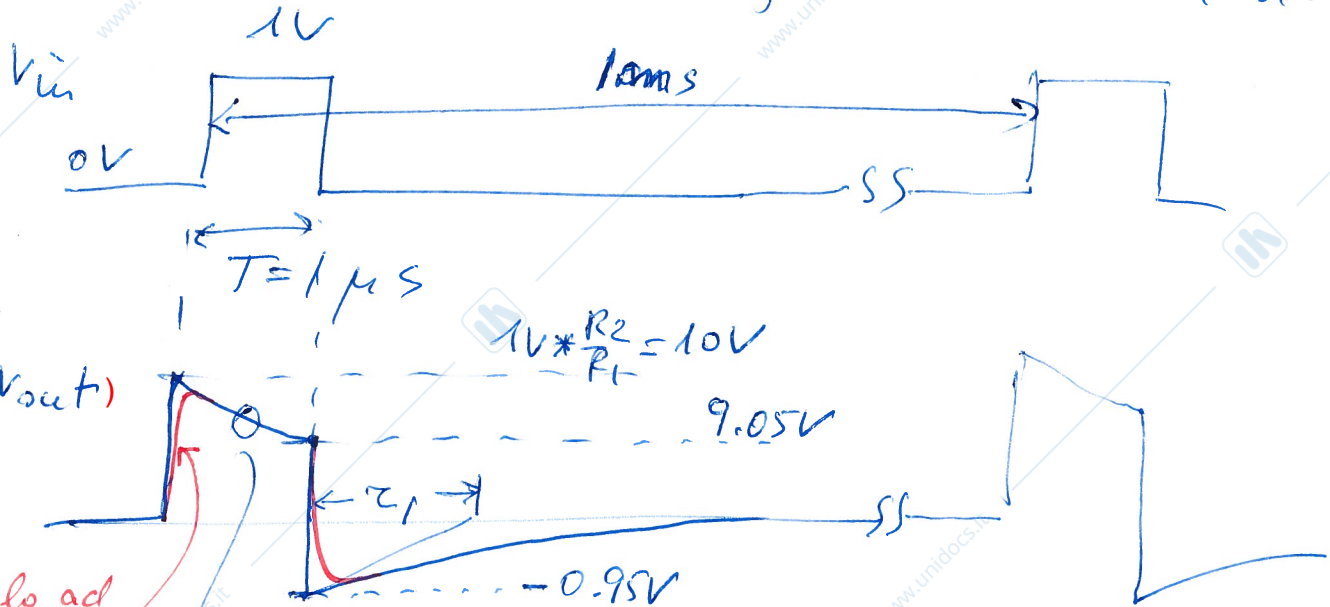 1V
Vin
10ms
0V
SS
T=1μs
1V*R2/R1=10V
Vout)
9.05V
τ1
SS
-0.95V
load
www.unidocs.it